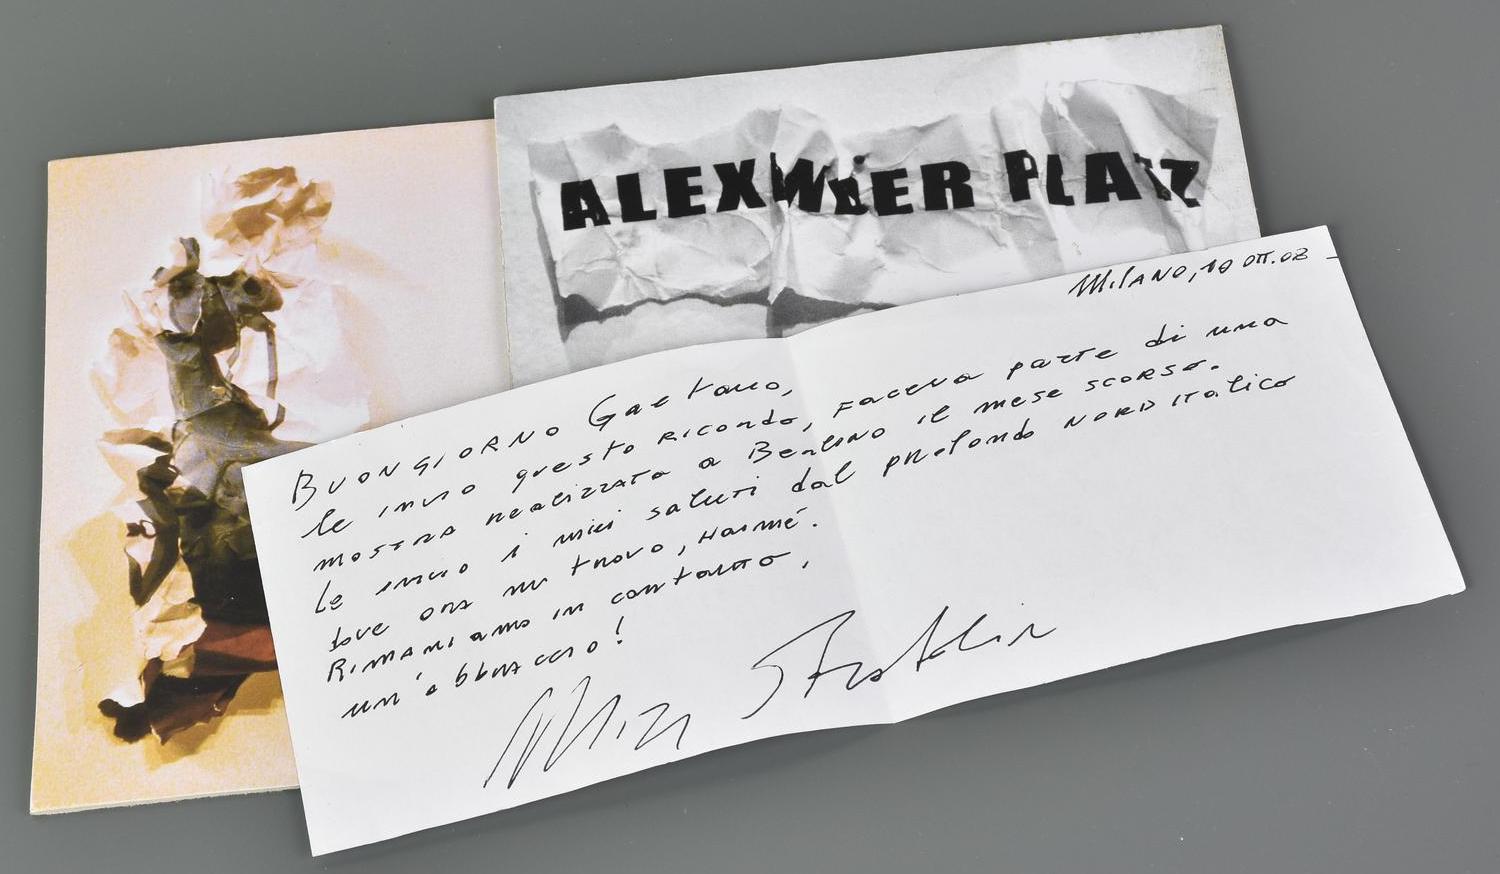 ALEXANDER PLATZ
MILANO, 10 OTT. 08 -
BUONGIORNO Gaetano,
le invio questo ricordo, faceva parte di una
mostra realizzata a Berlino il mese scorso.
Le invio i miei saluti dal profondo NORD italico
dove ora mi trovo, Haimé.
Rimaniamo in contatto,
un'abbraccio!